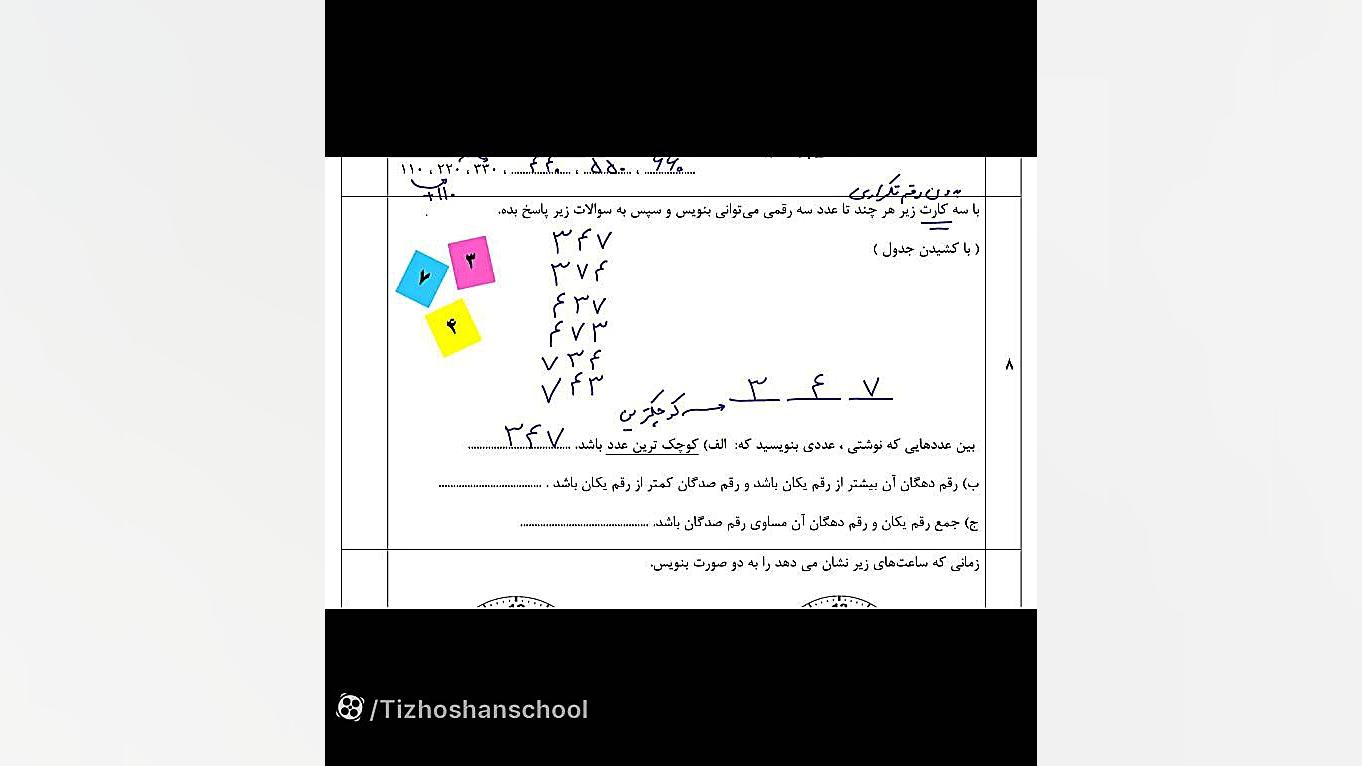 ۱۱۰ ، ۲۲۰ ، ۳۳۰ ، ۴۴۰ ، ۵۵۰ ، ۶۶۰
+۱۱۰
بدون رقم تکراری
با سه کارت زیر هر چند تا عدد سه رقمی می‌توانی بنویس و سپس به سوالات زیر پاسخ بده.
( با کشیدن جدول )
۳
۷
۴
۳۴۷
۳۷۴
۴۳۷
۴۷۳
۷۳۴
۷۴۳
۸
کوچکترین → ۳ ۴ ۷
بین عددهایی که نوشتی ، عددی بنویسید که: الف) کوچک ترین عدد باشد. ۳۴۷
ب) رقم دهگان آن بیشتر از رقم یکان باشد و رقم صدگان کمتر از رقم یکان باشد . ....................................
ج) جمع رقم یکان و رقم دهگان آن مساوی رقم صدگان باشد. .............................................
زمانی که ساعت‌های زیر نشان می دهد را به دو صورت بنویس.
12
12
/Tizhoshanschool